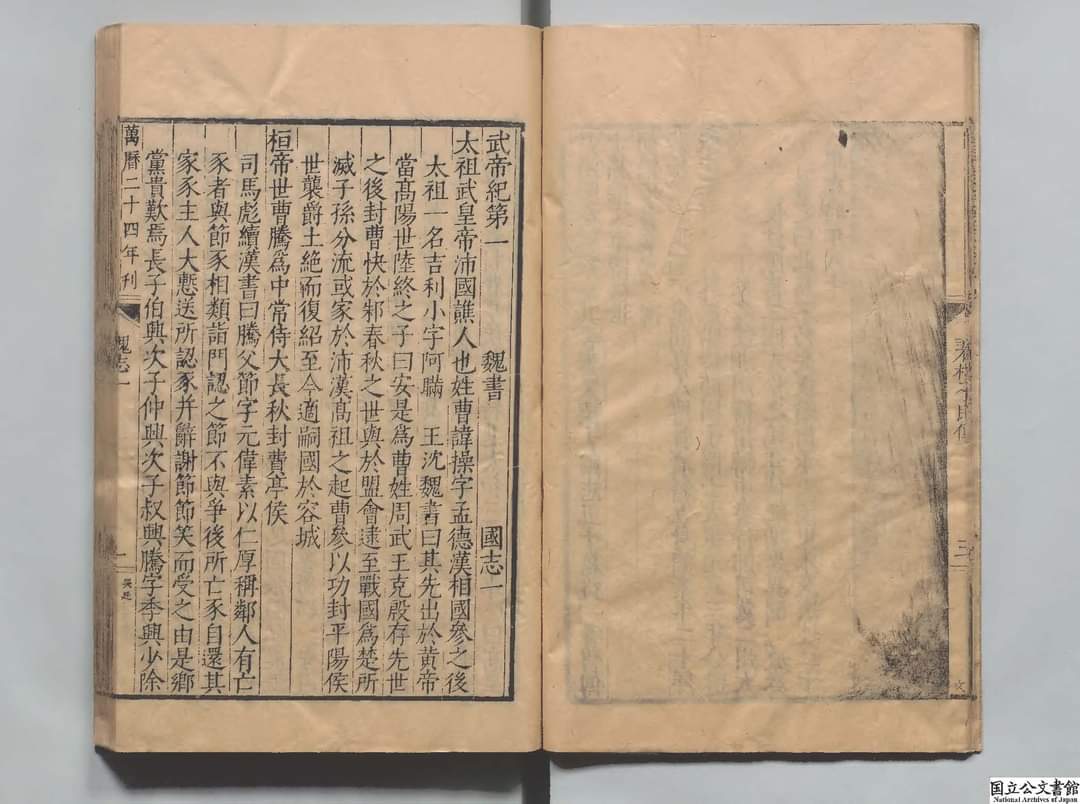 武帝紀第一 魏書 國志一
太祖武皇帝沛國譙人也姓曹諱操字孟德漢相國參之後
太祖一名吉利小字阿瞞 王沈魏書曰其先出於黄帝
當髙陽世陸終之子曰安是爲曹姓周武王克殷存先世
之後封曹俠於邾春秋之世與於盟會逮至戰國爲楚所
滅子孫分流或家於沛漢髙祖之起曹參以功封平陽侯
世襲爵土絶而復紹至今適嗣國於容城
桓帝世曹騰爲中常侍大長秋封費亭侯
司馬彪續漢書曰騰父節字元偉素以仁厚稱鄰人有亡
豕者與節豕相類詣門認之節不與爭後所亡豕自還其
家豕主人大慙送所認豕并辭謝節節笑而受之由是鄉
黨貴歎焉長子伯興次子仲興次子叔興騰字季興少除
萬曆二十四年刊
魏志一
一
三
文
国立公文書館
National Archives of Japan